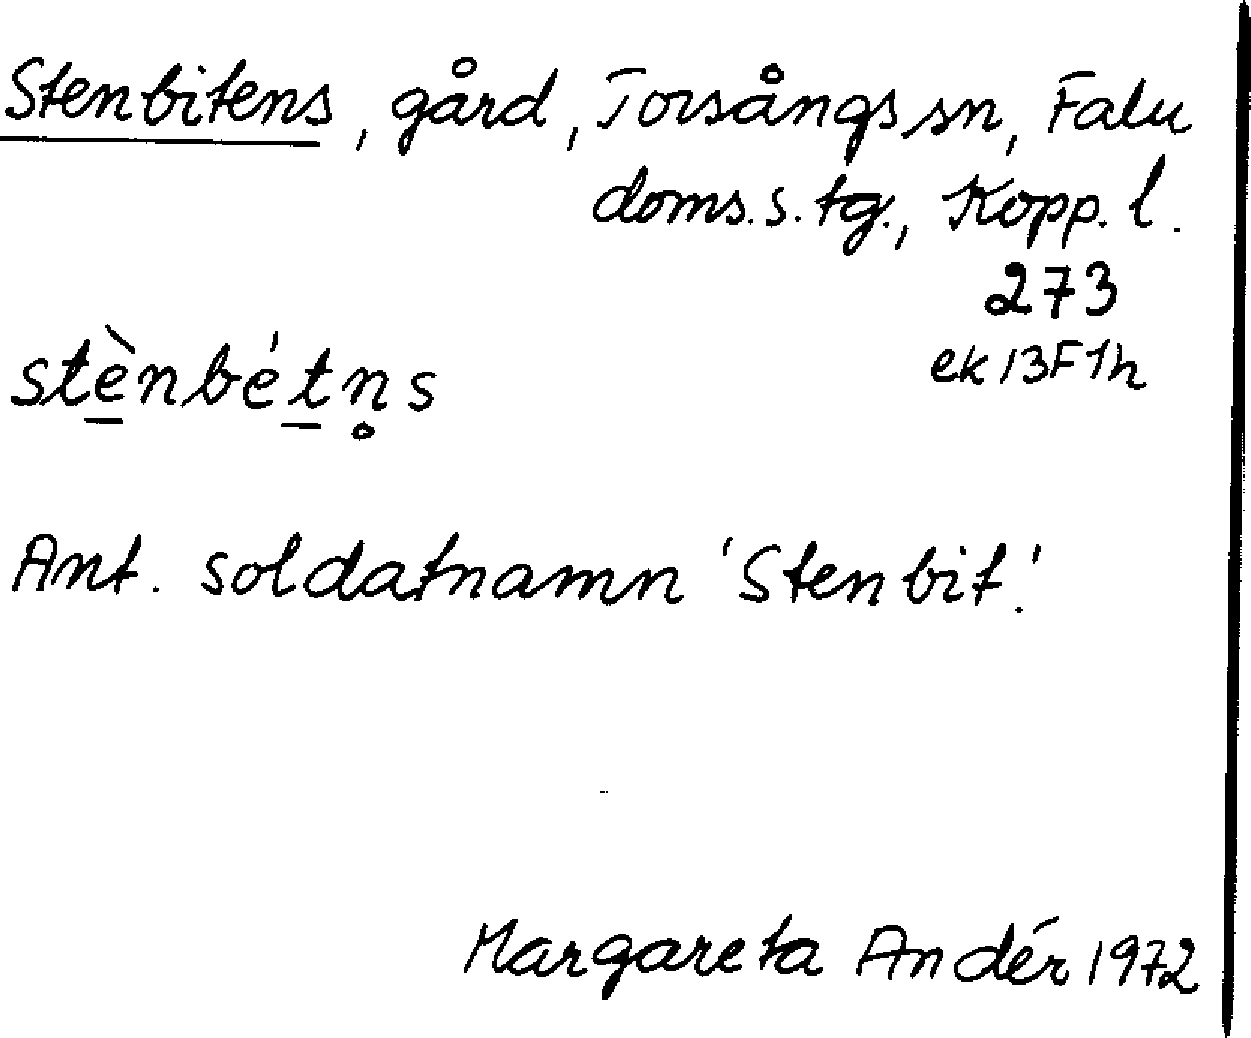 Stenbitens, gård, Torsångs sn, Falu
doms.s.tg., Kopp. l.
273
ek 13F1h
stè̱nbéṯn̥s
Ant. soldatnamn 'Stenbit'.
Margareta Andér 1972